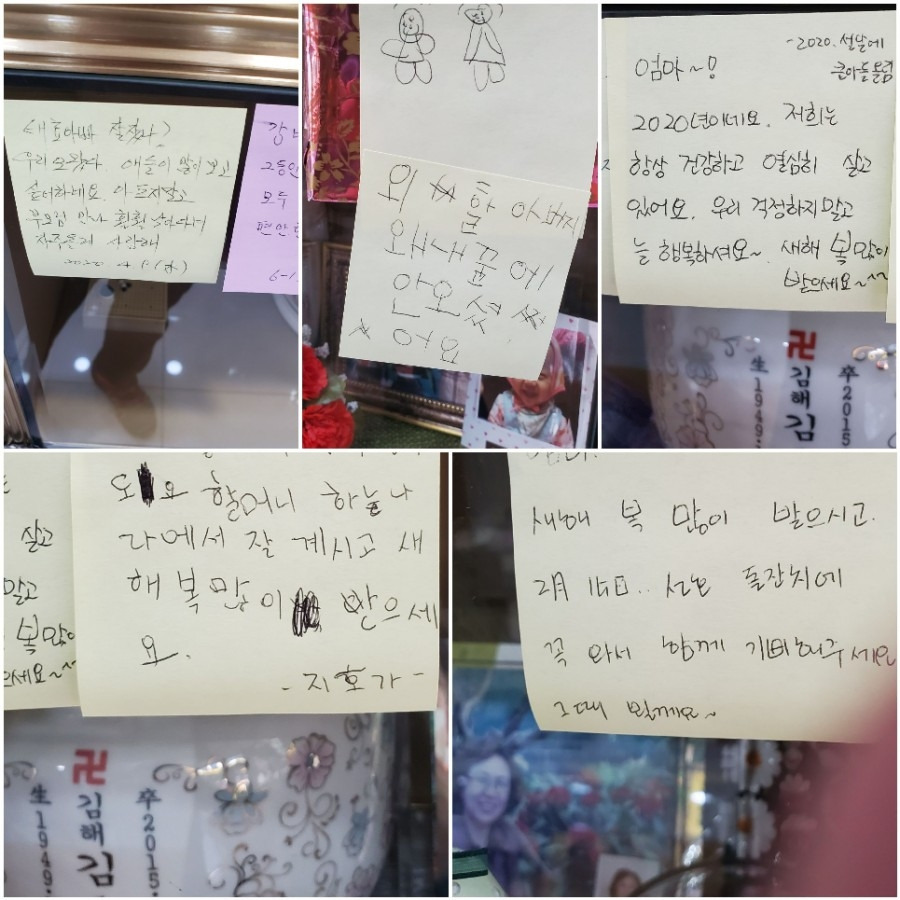 태호아빠 잘있나?
우리 모왔다 애들이 많이 보고
싶어하네요. 아프지말고
부모님 만나
자주올게 사랑해
2020
강
그동안
모두
편안
6-1
외 할 아버지
왜 내 꿈에
안 오셨
어요
-2020. 설날에
큰아들 올림
엄마~!
2020년이네요. 저희는
항상 건강하고 열심히 살고
있어요. 우리 걱정하지말고
늘 행복하셔요~ 새해 복많이
받으세요~~
生 1949.
卍 김해김
卒 2015
살고
말고
복많이
으세요~~
요 할머니 하늘나
라에서 잘 계시고 새
해 복 많 이 받으세
요.
-지호가-
生 1949.
卍 김해김
卒 2015.
새해 복 많이 받으시고.
2月 15日.. 선호 돌잔치에
꼭 와서 함께 기뻐해주세요
그때 뵐께요~